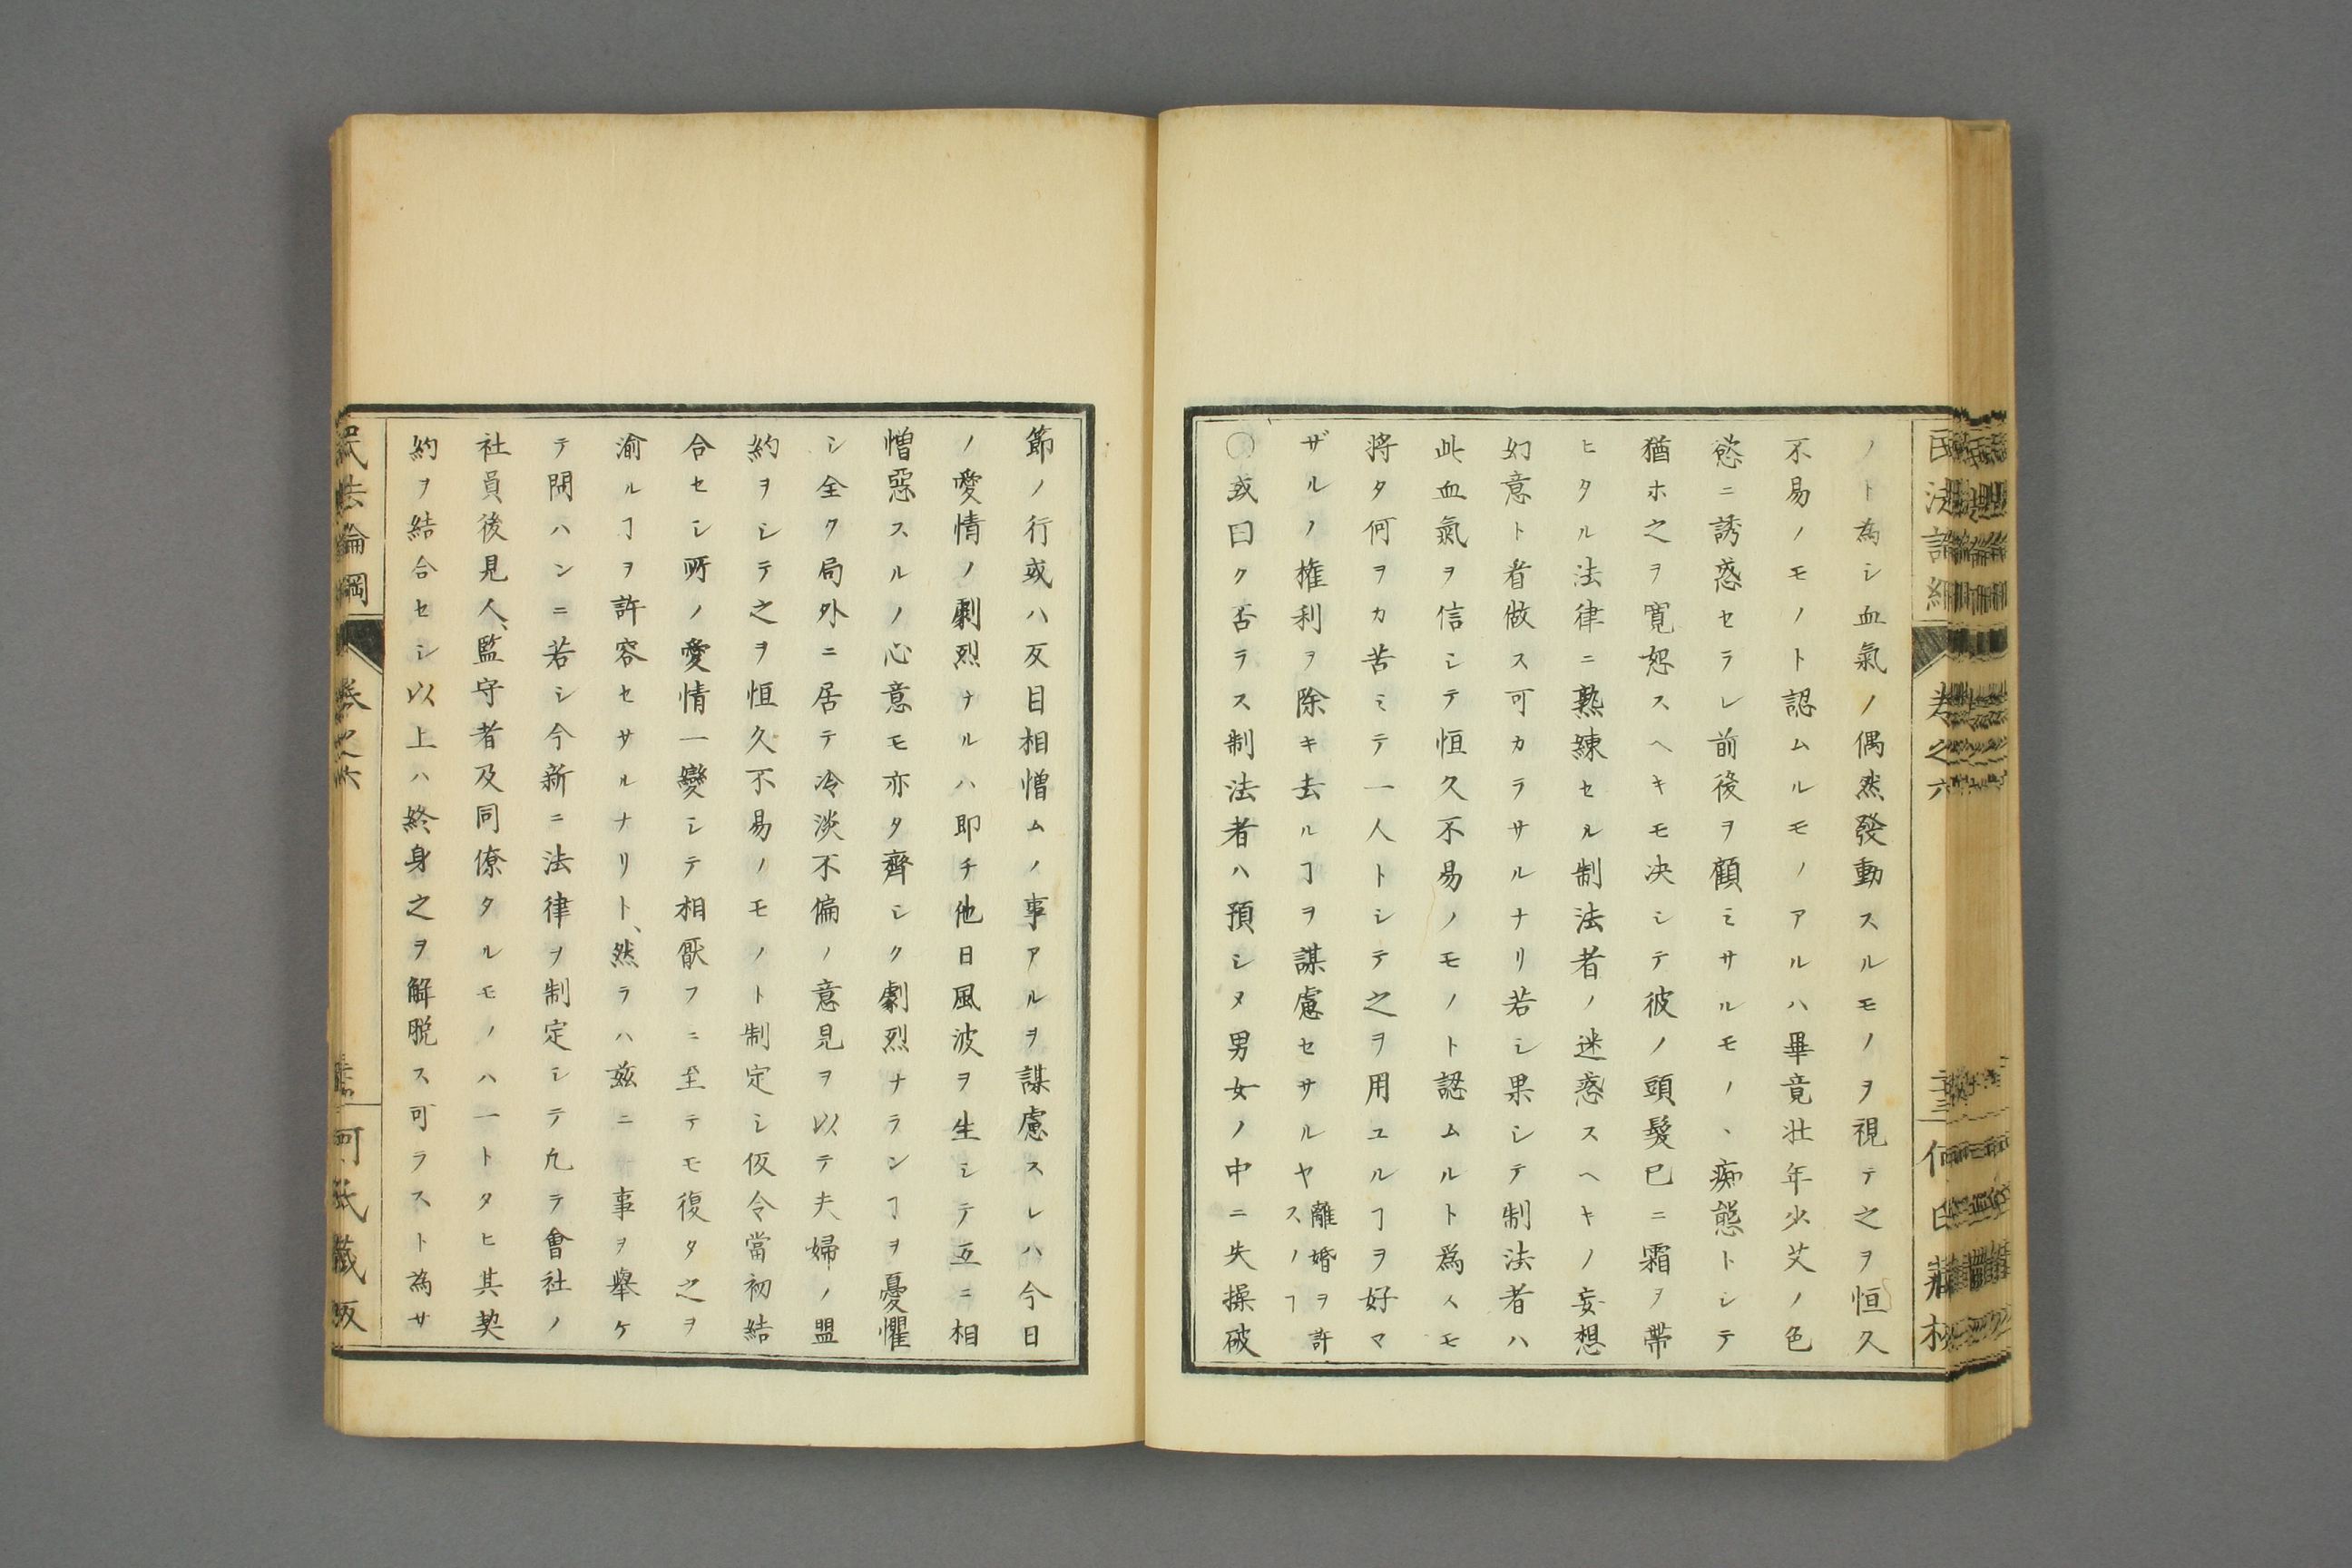 ノト為シ血氣ノ偶然發動スルモノヲ視テ之ヲ恒久
不易ノモノト認ムルモノアルハ畢竟壮年少艾ノ色
慾ニ誘惑セラレ前後ヲ顧ミサルモノヽ痴態トシテ
猶ホ之ヲ寛恕スヘキモ決シテ彼ノ頭髮已ニ霜ヲ帶
ヒタル法律ニ熟練セル制法者ノ迷惑スヘキノ妄想
幻意ト看做ス可カラサルナリ若シ果シテ制法者ハ
此血氣ヲ信シテ恒久不易ノモノト認ムルト爲スモ
将タ何ヲカ苦ミテ一人トシテ之ヲ用ユルヿヲ好マ
ザルノ権利ヲ除キ去ルヿヲ謀慮セサルヤ離婚ヲ許
スノヿ
○或曰ク否ラス制法者ハ預シメ男女ノ中ニ失操破
節ノ行或ハ反目相憎ムノ事アルヲ謀慮スレハ今日
ノ愛情ノ劇烈ナルハ即チ他日風波ヲ生シテ互ニ相
憎惡スルノ心意モ亦タ齊シク劇烈ナランヿヲ憂懼
シ全ク局外ニ居テ冷淡不偏ノ意見ヲ以テ夫婦ノ盟
約ヲシテ之ヲ恒久不易ノモノト制定シ仮令當初結
合セシ所ノ愛情一變シテ相厭フニ至テモ復タ之ヲ
渝ルヿヲ許容セサルナリト、然ラハ茲ニ一事ヲ擧ケ
テ問ハンニ若シ今新ニ法律ヲ制定シテ凢ラ會社ノ
社員後見人、監守者及同僚タルモノハ一トタヒ其契
約ヲ結合セシ以上ハ終身之ヲ解脱ス可ラスト為サ
民法論綱
卷之六
何氏藏版